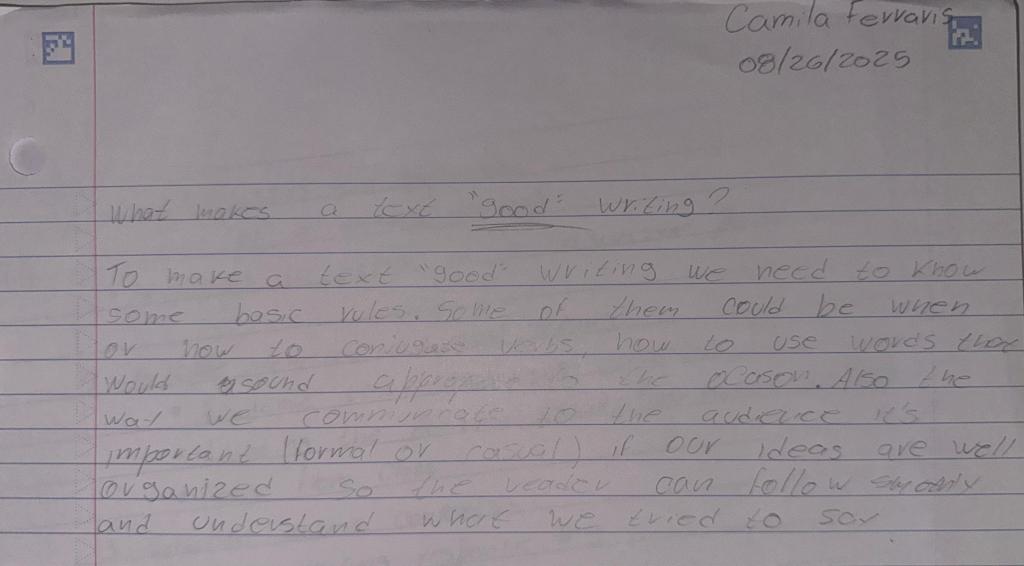 Camila Ferraris
08/26/2025
What makes a text "good" writing?
To make a text "good" writing we need to know
some basic rules. Some of them could be when
or how to conjugate verbs, how to use words that
would sound appropriate to the ocason. Also the
way we communicate to the audience it's
important (formal or casual) if our ideas are well
organized so the reader can follow
and understand what we tried to say